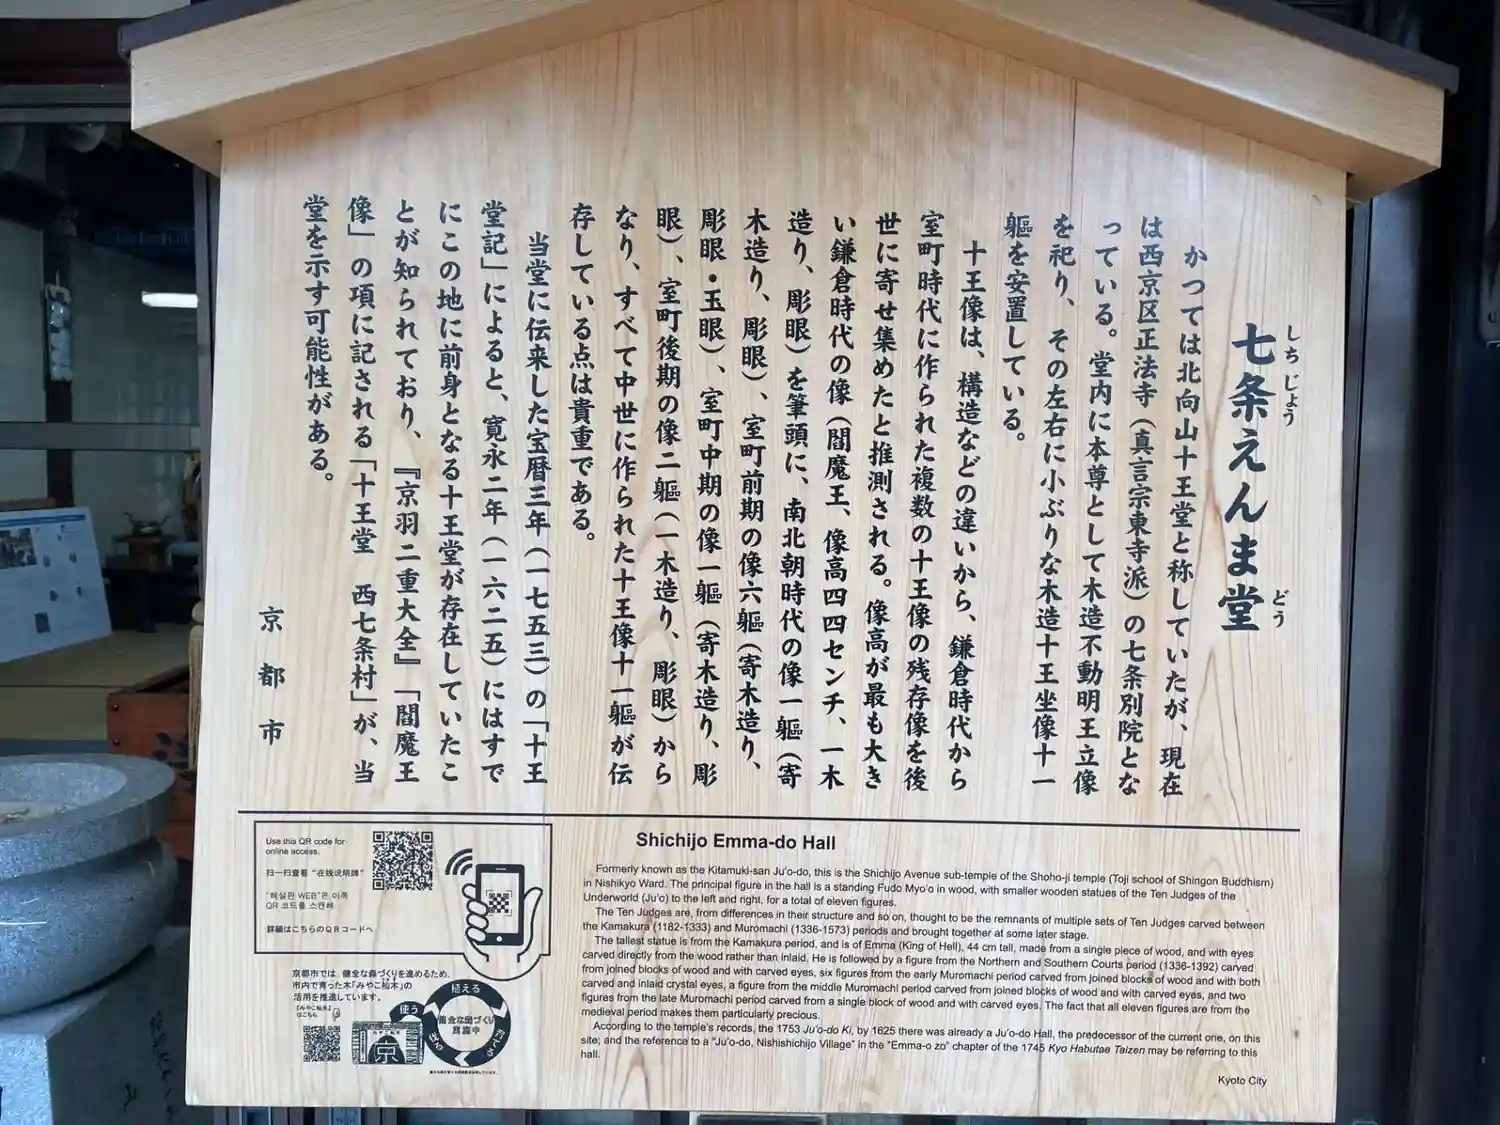 七条えんま堂
しちじょう
どう
かつては北向山十王堂と称していたが、現在
は西京区正法寺（真言宗東寺派）の七条別院とな
っている。堂内に本尊として木造不動明王立像
を祀り、その左右に小ぶりな木造十王坐像十一
軀を安置している。
十王像は、構造などの違いから、鎌倉時代から
室町時代に作られた複数の十王像の残存像を後
世に寄せ集めたと推測される。像高が最も大き
い鎌倉時代の像（閻魔王、像高四四センチ、一木
造り、彫眼）を筆頭に、南北朝時代の像一軀（寄
木造り、彫眼）、室町前期の像六軀（寄木造り、
彫眼・玉眼）、室町中期の像一軀（寄木造り、彫
眼）、室町後期の像二軀（一木造り、彫眼）から
なり、すべて中世に作られた十王像十一軀が伝
存している点は貴重である。
当堂に伝来した宝暦三年（一七五三）の「十王
堂記」によると、寛永二年（一六二五）にはすで
にこの地に前身となる十王堂が存在していたこ
とが知られており、『京羽二重大全』「閻魔王
像」の項に記される「十王堂　西七条村」が、当
堂を示す可能性がある。
京都市
Use this QR code for
online access.
扫一扫查看“在线说明牌”
"해설판 WEB"은 이쪽
QR 코드를 스캔해
詳細はこちらのQRコードへ
京都市では、健全な森づくりを進めるため、
市内で育った木「みやこ杣木」の
活用を推進しています。
「みやこ杣木」
はこちら
植える
育てる
使う
健全な森づくり
実施中
Shichijo Emma-do Hall
Formerly known as the Kitamuki-san Ju'o-do, this is the Shichijo Avenue sub-temple of the Shoho-ji temple (Toji school of Shingon Buddhism)
in Nishikyo Ward. The principal figure in the hall is a standing Fudo Myo'o in wood, with smaller wooden statues of the Ten Judges of the
Underworld (Ju'o) to the left and right, for a total of eleven figures.
The Ten Judges are, from differences in their structure and so on, thought to be the remnants of multiple sets of Ten Judges carved between
the Kamakura (1182-1333) and Muromachi (1336-1573) periods and brought together at some later stage.
The tallest statue is from the Kamakura period, and is of Emma (King of Hell), 44 cm tall, made from a single piece of wood, and with eyes
carved directly from the wood rather than inlaid. He is followed by a figure from the Northern and Southern Courts period (1336-1392) carved
from joined blocks of wood and with carved eyes, six figures from the early Muromachi period carved from joined blocks of wood and with both
carved and inlaid crystal eyes, a figure from the middle Muromachi period carved from joined blocks of wood and with carved eyes, and two
figures from the late Muromachi period carved from a single block of wood and with carved eyes. The fact that all eleven figures are from the
medieval period makes them particularly precious.
According to the temple's records, the 1753 Ju'o-do Ki, by 1625 there was already a Ju'o-do Hall, the predecessor of the current one, on this
site; and the reference to a "Ju'o-do, Nishishichijo Village" in the "Emma-o zo" chapter of the 1745 Kyo Habutae Taizen may be referring to this
hall.
Kyoto City